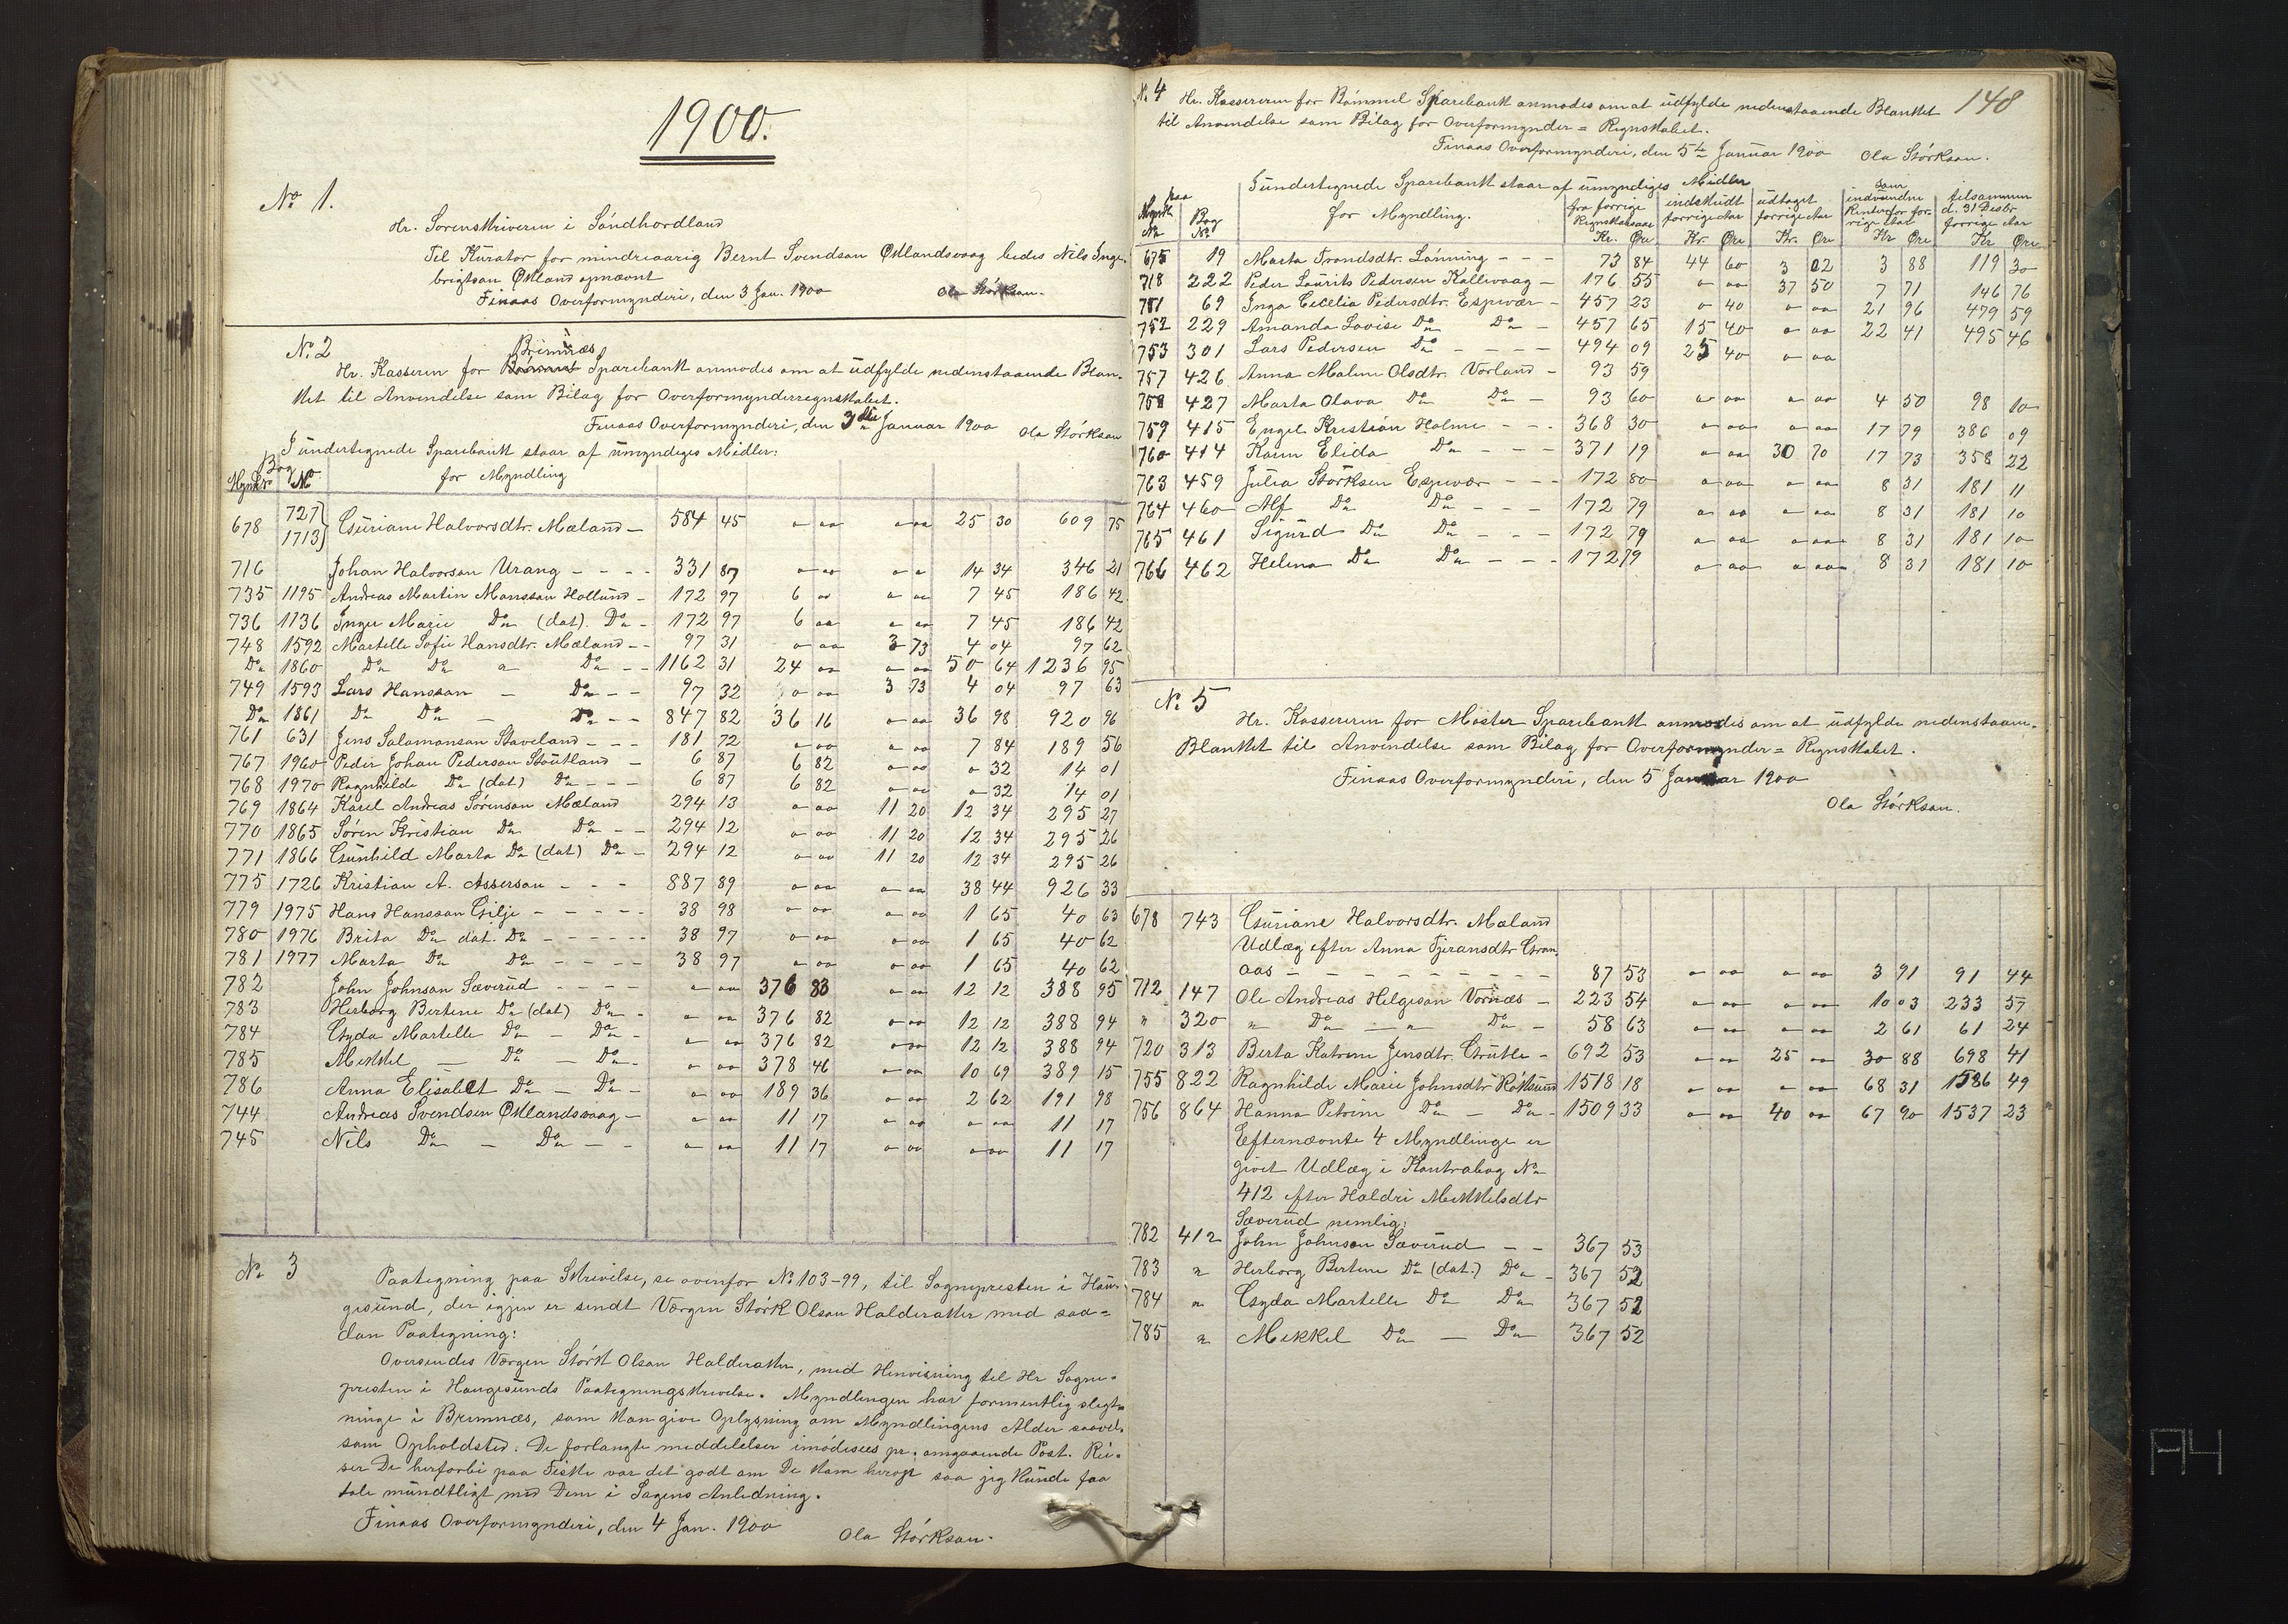 1900.
No 1.
Hr. Sorenskriveren i Söndhordland
Til Kurator for mindreaarig Bernt Svendsen Øklandsvaag bedes Nils Inge-
brigtsen Økland opnævnt
Finaas Overformynderi, den 3 Jan. 1900 Ola Störksen.
No. 2 Brimnæs
Hr. Kasseren for Sparebank anmodes om at udfylde nedenstaaende Blan-
ket til Anvendelse som Bilag for Overformynderregnskabet.
Finaas Overformynderi, den 3die Januar 1900 Ola Störksen
I undertegnede Sparebank staar af umyndiges Midler:
Mynd. No Bog No for Myndling
678 727 1713 Guriane Halvorsdtr. Mæland — 584 45 " " " " 25 30 609 75
716 Johan Halvorsen Urang - - - 331 87 " " " " 14 34 346 21
735 1195 Andreas Martin Monsson Hollund - 172 97 6 " " " 7 45 186 42
736 1136 Inger Marie Do (dat). Do - 172 97 6 " " " 7 45 186 42
748 1592 Martelle Sofie Hansdtr. Mæland - - 97 31 " " 3 73 4 04 97 62
Do 1860 Do Do " Do - - 1162 31 24 " " " 50 64 1236 95
749 1593 Lars Hansson - Do - - 97 32 " " 3 73 4 04 97 63
Do 1861 Do Do - Do - - 847 82 36 16 " " 36 98 920 96
761 631 Jens Salamonsen Staveland - - - 181 72 " " " " 7 84 189 56
767 1960 Peder Johan Pedersen Stoutland - 6 87 6 82 " " " 32 14 01
768 1970 Ragnhilde Do (dat) Do - - - 6 87 6 82 " " " 32 14 01
769 1864 Karel Andreas Sörensen Mæland 294 13 " " 11 20 12 34 295 27
770 1865 Sören Kristian Do Do - - 294 12 " " 11 20 12 34 295 26
771 1866 Gunhild Marta Do (dat) Do - 294 12 " " 11 20 12 34 295 26
775 1726 Kristian A. Asserson - - - 887 89 " " " " 38 44 926 33
779 1975 Hans Hansson Gilje - - - - - 38 98 " " " " 1 65 40 63
780 1976 Brita Do dat. Do - - - - - 38 97 " " " " 1 65 40 62
781 1977 Marta Do Do - - - - 38 97 " " " " 1 65 40 62
782 John Johnson Sæverud - - - - " " 376 83 " " 12 12 388 95
783 Herborg Bertine Do (dat) Do - " " 376 82 " " 12 12 388 94
784 Gyda Martelle Do - Do - " " 376 82 " " 12 12 388 94
785 Mikkel - Do - Do - " " 378 46 " " 10 69 389 15
786 Anna Elisabet Do - Do - " " 189 36 " " 2 62 191 98
744 Andreas Svendsen Øklandsvaag - " " 11 17 " " " " 11 17
745 Nils Do - Do - - " " 11 17 " " " " 11 17
No 3
Paategning paa Skrivelse, se ovenfor No. 103-99, til Sognepresten i Hau-
gesund, der igjen er sendt Værgen Störk Olsen Halderaker med saa=
dan Paategning:
Oversendes Værgen Störk Olsen Halderaker, med Henvisning til Hr Sogne-
presten i Haugesunds Paategningsskrivelse. Myndlingen har formentlig slegt-
ninge i Bremnæs, som kan give Oplysning om Myndlingens Alder saavel
som Opholdsted. De forlangte meddelelser imödesees pr. omgaaende Post. Rei-
ser De herforbi paa Fiske var det godt om De kom herop saa jeg kunde faa
tale mundtligt med Dem i Sagens Anledning.
Finaas Overformynderi, den 4 Jan. 1900
Ola Störksen.
148
No. 4 Hr. Kassereren for Bömmel Sparebank anmodes om at udfylde nedenstaaende Blanket
til Anvendelse som Bilag for Overformynder = Regnskabet.
Finaas Overformynderi, den 5te Januar 1900 Ola Störksen.
I undertegnede Sparebank staar af umyndiges Midler
Mynd. No paa Bog No for Myndling. fra forrige Regnskabsaar indskudt forrige Aar udtaget forrige Aar som indvundne Renter for forrige Aar tilsammen d. 31 Decbr. forrige Aar
Kr. Øre Kr. Øre Kr. Øre Kr Øre Kr Øre
675 19 Marta Trondsdtr. Lönning - - - 73 84 44 60 3 02 3 88 119 30
718 222 Peder Laurits Pedersen Kallevaag - 176 55 " " 37 50 7 71 146 76
751 69 Inga Cecelia Pedersdtr. Espevær - 457 23 " 40 " " 21 96 479 59
752 229 Amanda Lovise Do Do - 457 65 15 40 " " 22 41 495 46
753 301 Lars Pedersen Do - - - - 494 09 25 40 " "
757 426 Anna Maline Olsdtr. Vorland - 93 59
758 427 Marta Olava Do Do - 93 60 " " " " 4 50 98 10
759 415 Engel Kristian Holme - - - 368 30 " " " " 17 79 386 09
760 414 Karen Elida Do - - - 371 19 " " 30 70 17 73 358 22
763 459 Julia Störksen Espevær - - - 172 80 " " " " 8 31 181 11
764 460 Alf Do Do - - - 172 79 " " " " 8 31 181 10
765 461 Sigurd Do Do - - - 172 79 " " " " 8 31 181 10
766 462 Helena Do Do - - - 172 79 " " " " 8 31 181 10
No. 5
Hr. Kassereren for Moster Sparebank anmodes om at udfylde nedenstaaen-
Blanket til Anvendelse som Bilag for Overformynder = Regnskabet.
Finaas Overformynderi, den 5 Januar 1900
Ola Störksen.
678 743 Guriane Halvorsdtr. Mæland
Udlæg efter Anna Tjeransdtr Gron
aas - - - - - - - - - 87 53 " " " " 3 91 91 44
712 147 Ole Andreas Helgeson Vornæs - 223 54 " " " " 10 03 233 57
" 320 " Do - " Do - 58 63 " " " " 2 61 61 24
720 313 Berta Katrine Jensdtr. Grutle - 692 53 " " 25 " 30 88 698 41
755 822 Ragnhilde Marie Johnsdtr Röksund 1518 18 " " " " 68 31 1586 49
756 864 Hanna Petrine Do - Do - 1509 33 " " 40 " 67 90 1537 23
Efternævnte 4 Myndlinge er
givet Udlæg i Kontrabog No
412 efter Haldri Mikkelsdtr
Sæverud nemlig:
782 412 John Johnson Sæverud - - 367 53
783 " Herborg Bertine Do (dat.) Do - 367 52
784 " Gyda Martelle Do Do 367 52
785 " Mekkel Do - Do 367 52
A4